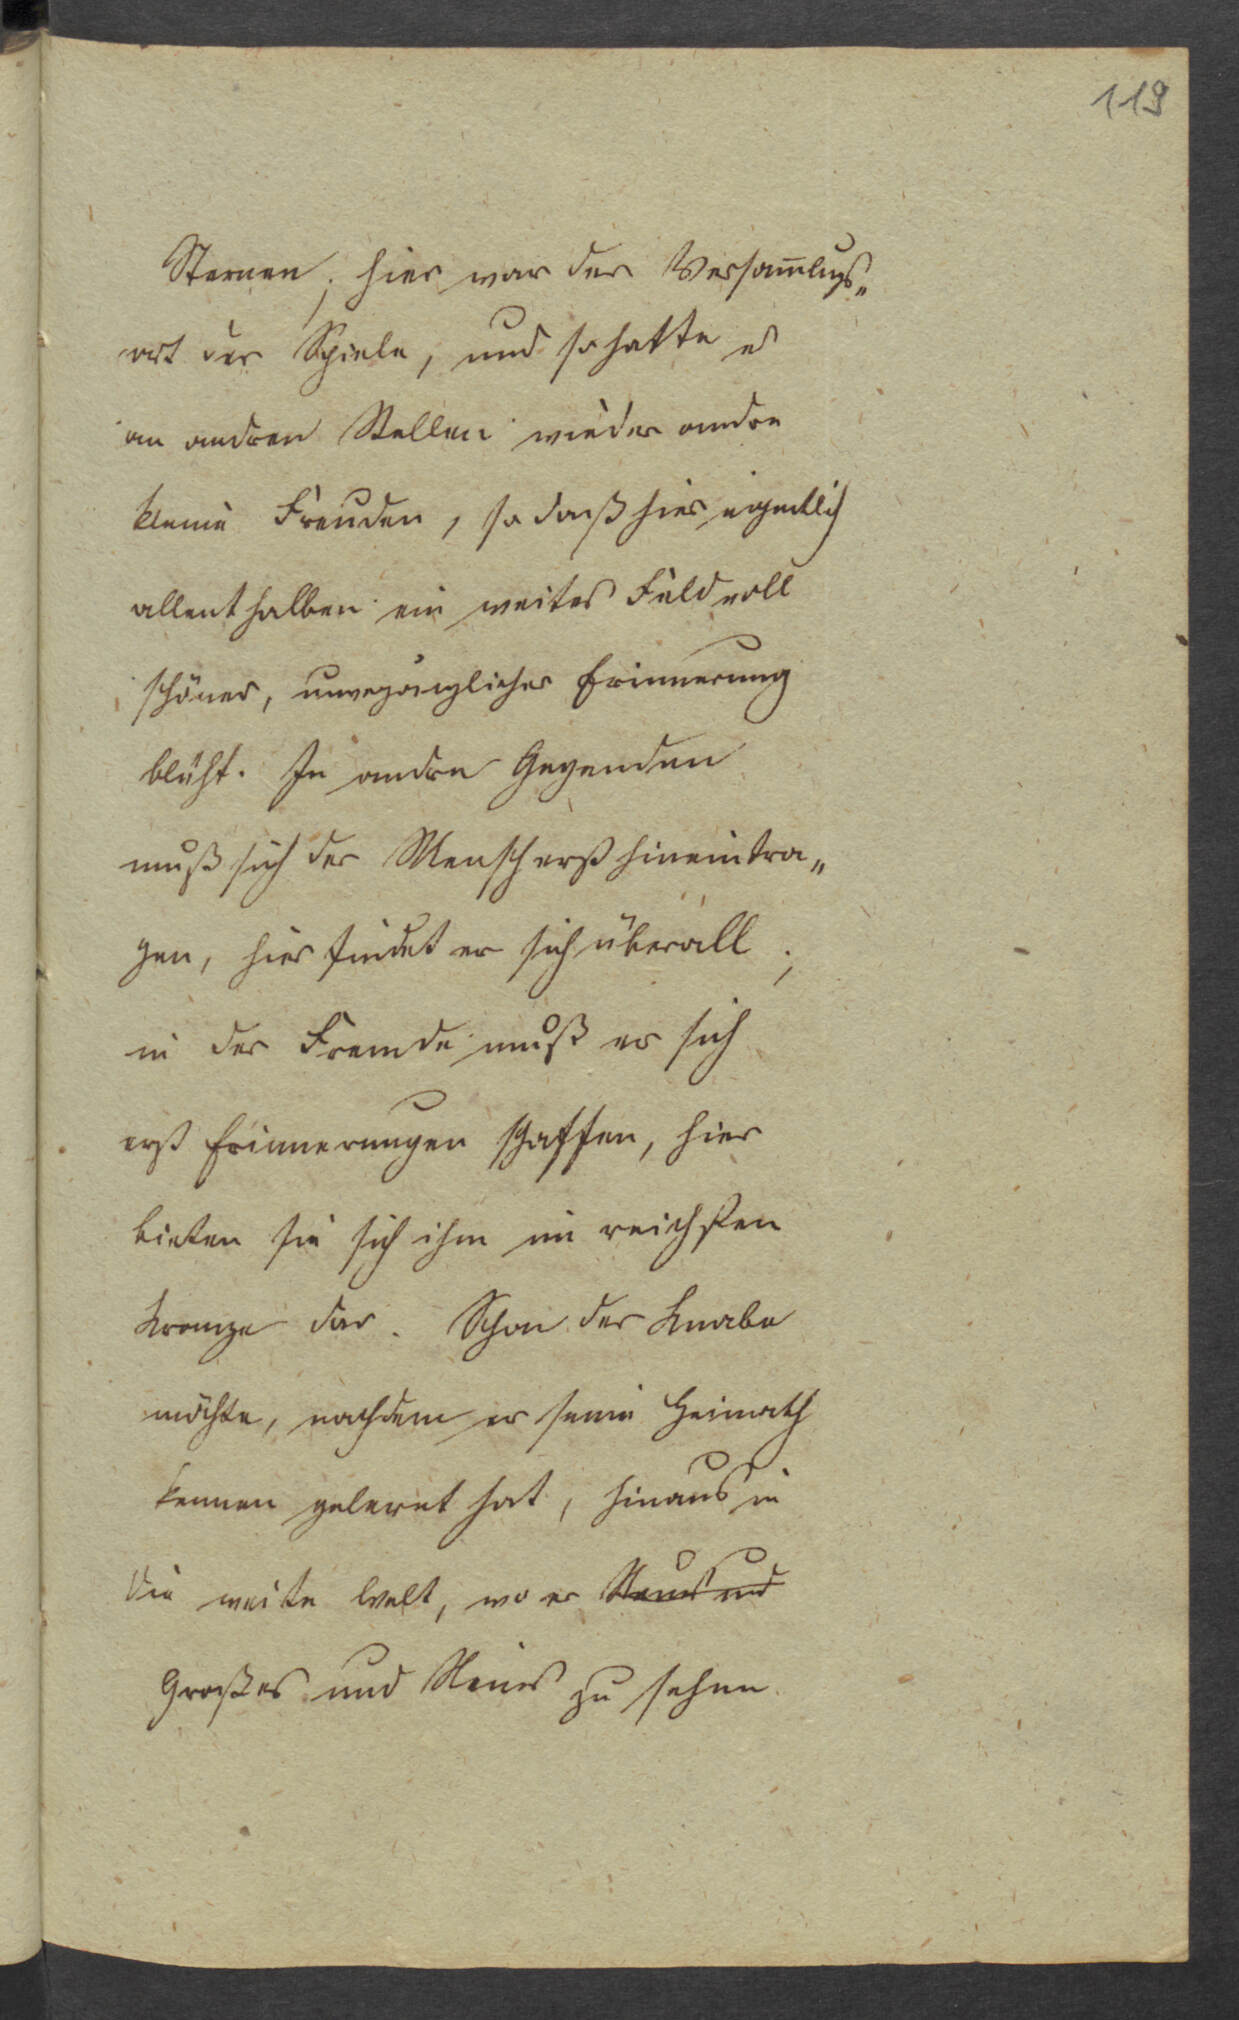 119
Sternen; hier war der Versam̅lugs„
ort der Spiele, und so hatte es
an andren Stellen wieder andre
kleine Freuden, so daß hier eigentlich
allenthalben ein weites Feld voll
schöner, unvergänglicher Erinnerung
blüht. In andre Gegenden
muß sich der Mensch erst hineintra„
gen, hier findet er sich überall;
in der Fremde muß er sich
erst Erinnerungen schaffen, hier
bieten sie sich ihm im reichsten
Kranze dar. Schon der Knabe
möchte, nachdem er seine Heimath
kennen gelernt hat, hinaus in
die weite Welt, wo er Neues und
Großes und Neues zu sehen